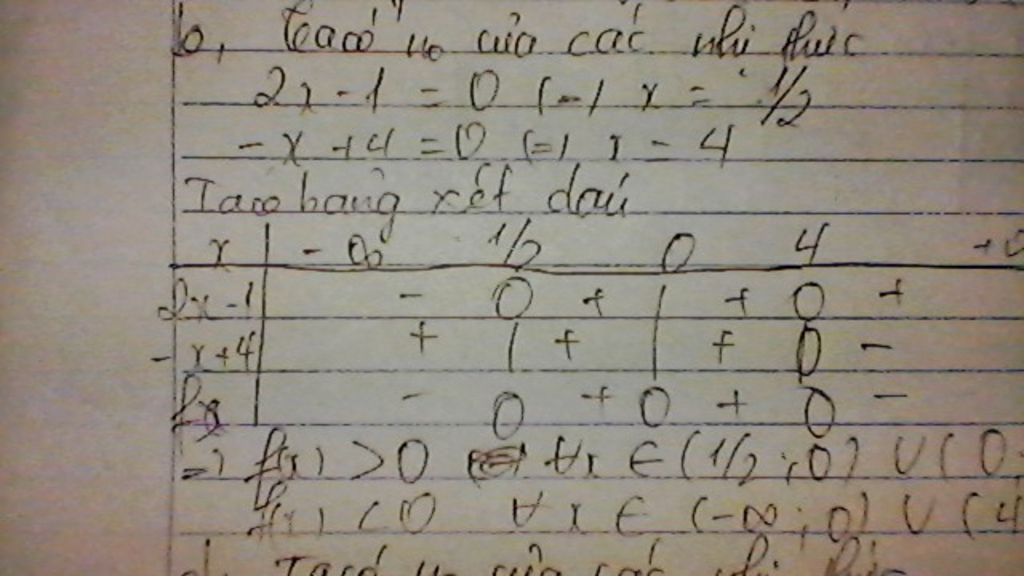 b, Ta có no của các nhị thức
2x - 1 = 0 (=) x = 1/2
-x + 4 = 0 (=) x = 4
Ta có bảng xét dấu
x | -∞ 1/2 0 4 +∞
2x-1 | - 0 + | + 0 +
-x+4 | + | + | + 0 -
f(x) | - 0 + 0 + 0 -
=) f(x) > 0 ∀x ∈ (1/2 ; 0) ∪ (0
f(x) < 0 ∀x ∈ (-∞ ; 0) ∪ (4
Ta có no của các nhị thức